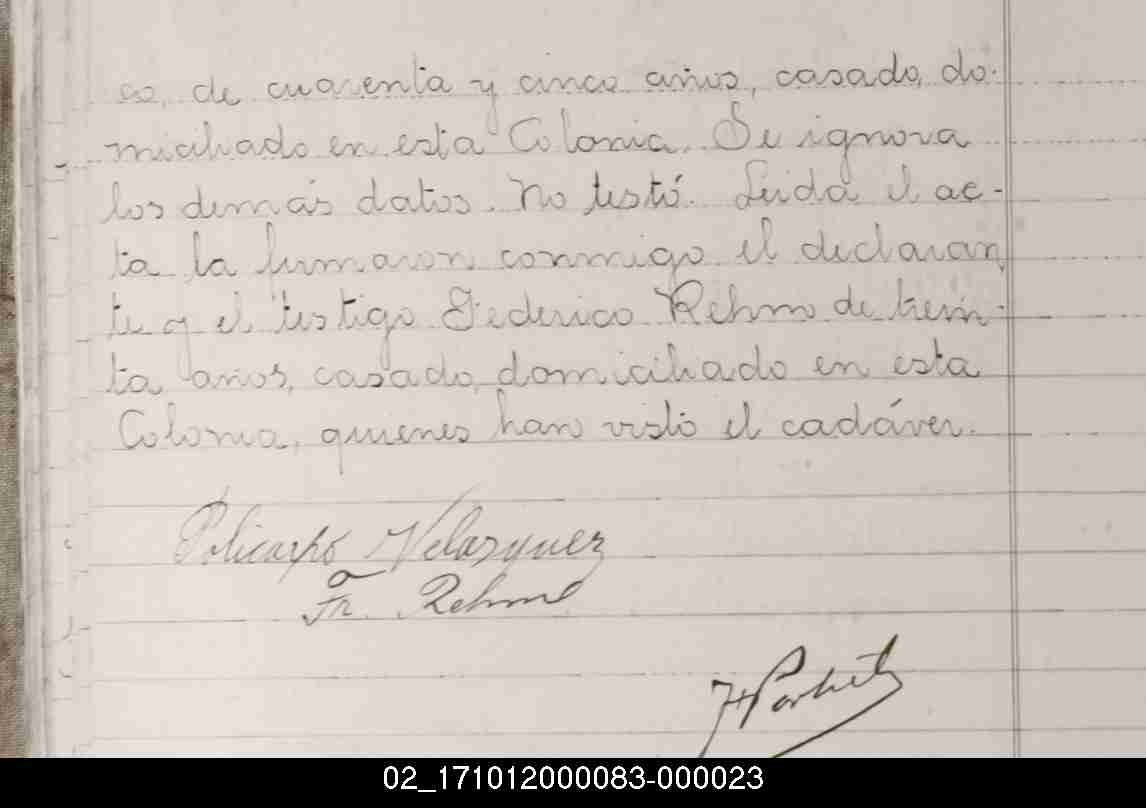 co, de cuarenta y cinco años, casado, do-
miciliado en esta Colonia. Se ignora
los demás datos. No testó. Leida el ac-
ta la firmaron conmigo el declaran
te y el testigo Federico Rehm de trein-
ta años, casado, domiciliado en esta
Colonia, quienes han visto el cadáver.
Policarpo Velazquez
Fr. Rehm
02_171012000083-000023